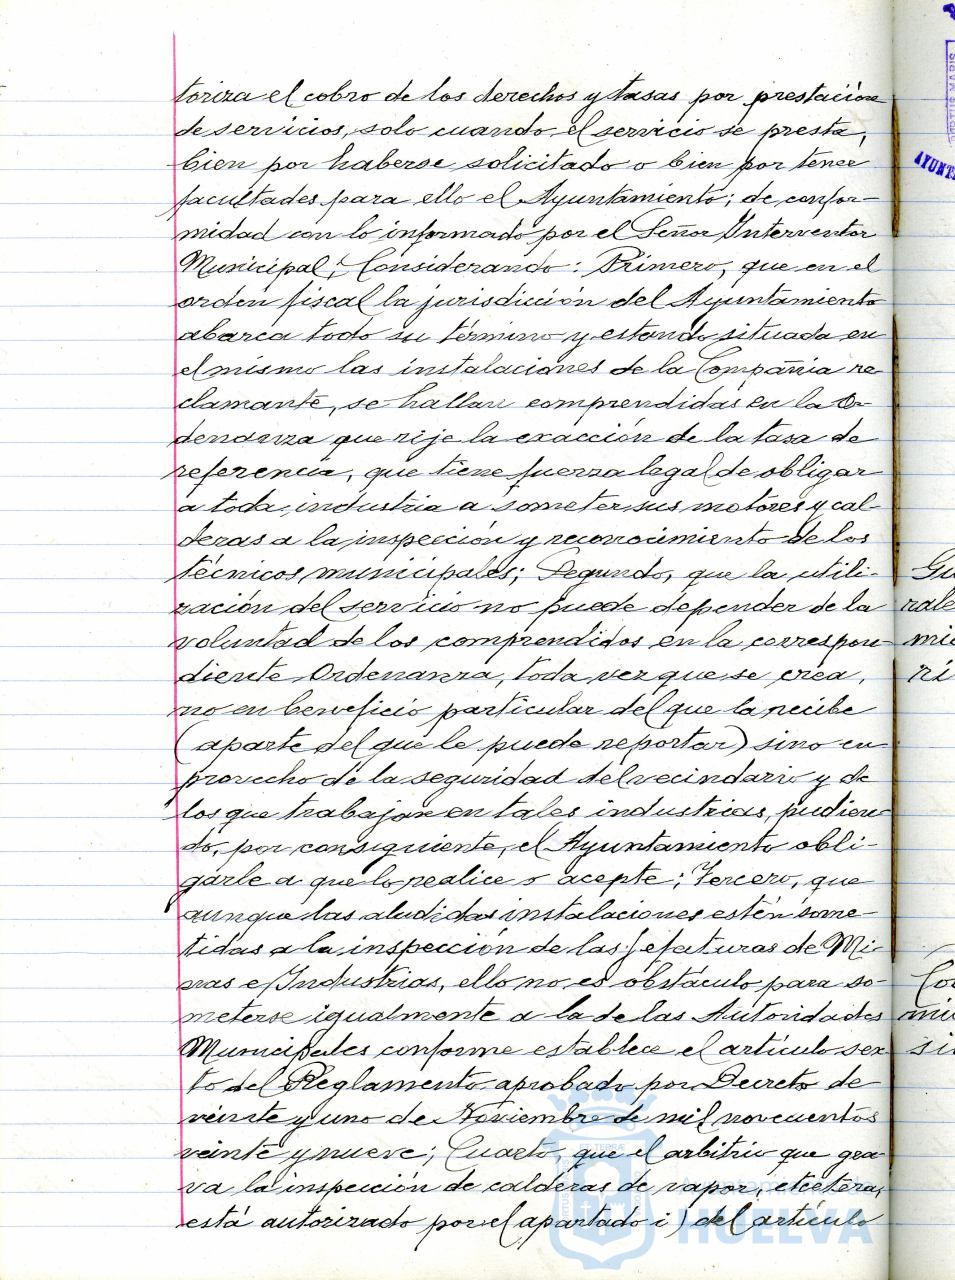 toriza el cobro de los derechos y tasas por prestación
de servicios, solo cuando el servicio se presta,
bien por haberse solicitado o bien por tener
facultades para ello el Ayuntamiento; de confor-
midad con lo informado por el Señor Interventor
Municipal; Considerando: Primero, que en el
orden fiscal la jurisdicción del Ayuntamiento
abarca todo su término y estando situada en
el mismo las instalaciones de la Compañia re-
clamante, se hallan comprendidas en la Or-
denanza que rije la exacción de la tasa de
referencia, que tiene fuerza legal de obligar
a toda industria a someter sus motores y cal-
deras a la inspección y reconocimiento de los
técnicos municipales; Segundo, que la utili-
zación del servicio no puede depender de la
voluntad de los comprendidos en la correspon-
diente Ordenanza, toda vez que se crea,
no en beneficio particular del que la recibe
(aparte del que le puede reportar) sino en
provecho de la seguridad del vecindario y de
los que trabajan en tales industrias, pudien-
do, por consiguiente, el Ayuntamiento obli-
garle a que lo realice o acepte; Tercero, que
aunque las aludidas instalaciones estén some-
tidas a la inspección de las Jefaturas de Mi-
nas e Industrias, ello no es obstáculo para so-
meterse igualmente a la de las Autoridades
Municipales conforme establece el artículo sex-
to del Reglamento aprobado por Decreto de
veinte y uno de Noviembre de mil novecientos
veinte y nueve; Cuarto, que el arbitrio que gra-
va la inspección de calderas de vapor, etcétera,
está autorizado por el apartado i) del artículo
Ayuntamiento de
HUELVA